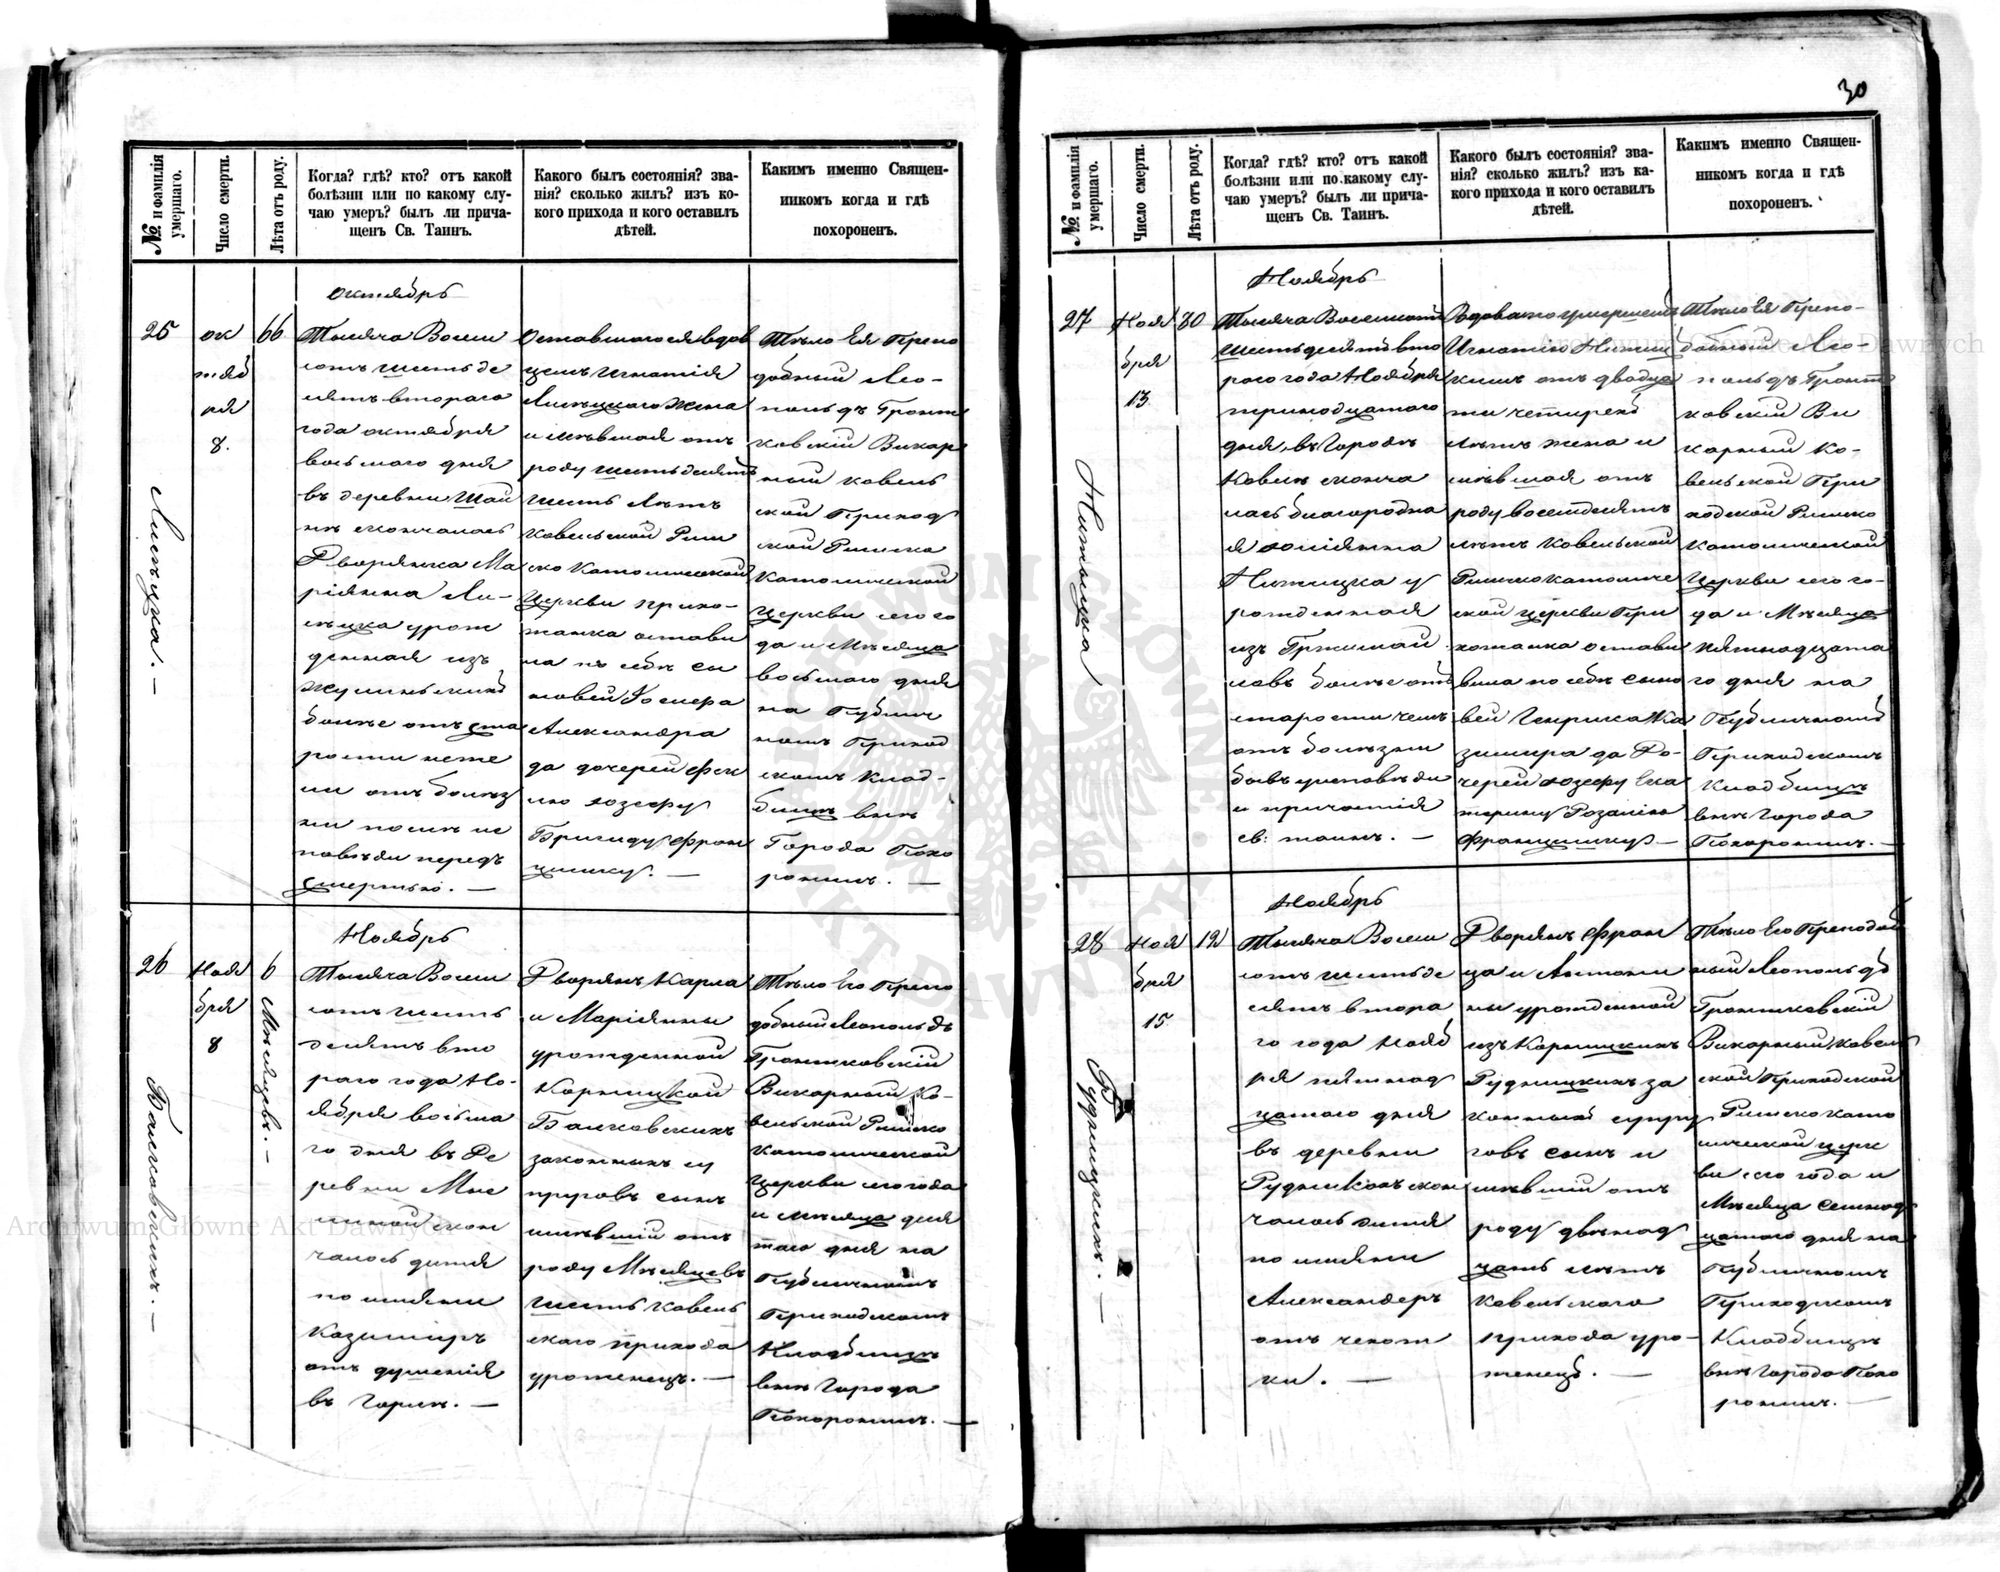 № и фамилія умершаго.
Число смерти.
Лѣта отъ роду.
Когда? гдѣ? кто? отъ какой
болѣзни или по какому слу-
чаю умеръ? былъ ли прича-
щенъ Св. Таинъ.
Какого былъ состоянія? зва-
нія? сколько жилъ? изъ ко-
кого прихода и кого оставилъ
дѣтей.
Какимъ именно Священ-
никомъ когда и гдѣ
похороненъ.
25
ок
тяб
ря
8.
66
октябрь
Тысяча Восем
сотъ шестьде
сятъ втораго
года октября
восьмаго дня
въ деревни
нѣ скончалась
Дворянка Ма
ріянна Ли-
сѣцка урож
денная изъ
болѣе отъ ста
рости неже
ли отъ болѣз
ни послѣ ис
повѣди передъ
смертью. —
Оставшагося вдов
цемъ Игнатія
Лисѣцкаго Жена
имѣвшая отъ
роду шестьдесятъ
шесть лѣтъ
Ковельской Рим
ско Католической
Церкви прихо-
жанка остави
ла по себѣ сы
новей Іосифа
Александра
да дочерей Фек
лю Юзефу
Бригиду Фран
цишку. —
Тѣло Ея Препо
добный Лео-
польдъ Гронт
ковскій Викар
ный Ковель
ской Приход
ской Римско
Католической
Церкви сего го
да и Мѣсяца
восьмаго дня
на Публич
номъ Приход
скомъ Клад-
бищѣ внѣ
Города Похо
ронилъ. —
Лисѣцка. —
26
Ноя
бря
8
6
Мѣсяцевъ. —
Ноябрь
Тысяча Восем
сотъ шесть
десятъ вто
раго года Но-
ября восьма
го дня въ Де
ревни
скон
чалось дитя
по имяни
Казимиръ
отъ душенія
въ Горлѣ. —
Дворянъ Карла
и Маріянны
урожденной
Корницкой
Балковскихъ
законныхъ су
пруговъ сынъ
имѣвшій отъ
роду Мѣсяцевъ
шесть Ковель
скаго прихода
уроженецъ. —
Тѣло Его Препо
добный Леопольдъ
Гронтковскій
Викарный Ко-
вельской Римско
Католической
Церкви сего года
и Мѣсяца
таго дня на
Публичномъ
Приходскомъ
Кладбищѣ
внѣ Города
Похоронилъ. —
Балковскихъ. —
30
№ и фамилія умершаго.
Число смерти.
Лѣта отъ роду.
Когда? гдѣ? кто? отъ какой
болѣзни или по какому слу-
чаю умеръ? былъ ли прича-
щенъ Св. Таинъ.
Какого былъ состоянія? зва-
нія? сколько жилъ? изъ ка-
кого прихода и кого оставилъ
дѣтей.
Какимъ именно Священ-
никомъ когда и гдѣ
похороненъ.
27
Ноя
бря
13
80
Ноябрь
Тысяча Восемьсотъ
Шестьдесятъ вто
раго года Ноября
тринадцатого
дня, въ Городѣ
Ковелѣ сконча
лась благородна
я Юліянна
Нитецка у
рожденная
изъ
болѣе отъ
старости чемъ
отъ болѣзни
бывъ уисповѣди
и причастія
св: таинъ. —
Вдова по умершемъ
Игнатію
кимъ отъ двадца
ти четырехъ
лѣтъ жена и
мѣвшая отъ
роду восемдесятъ
лѣтъ Ковельской
Римскокатоличе
ской церкви При
хожанка остави
вила по себѣ сыно
вей Генрика Ка
зимира да До-
черей Юзефу Ека
терину Розалію
Францишку —
Тѣло Ея Препо-
добный Лео-
польдъ Гронт
ковскій Ви
карный Ко-
вельской При
ходской Римско
католической
Церкви сего го-
да и Мѣсяца
пятнадцата
го дня на
Публичномъ
Приходскомъ
Кладбищѣ
внѣ Города
Похоронилъ. —
28
Ноя
бря
15
12
Ноябрь
Тысяча Восем
сотъ шестьде
сятъ втора
го года Нояб
ря пятнад
цатого дня
въ деревни
скон
чалось дитя
по имяни
Александеръ
отъ чехот
ки. —
Дворянъ Фран
ца и Антони
ны урожденной
изъ Корницкихъ
Рудницкихъ за
конныхъ супру
говъ сынъ и
мѣвшій отъ
роду двѣнад
цать лѣтъ
Ковельскаго
прихода уро-
женецъ. —
Тѣло Его Преподоб
ный Леопольдъ
Гронтковскій
Викарный Ковель
ской Приходской
Римско като
лической церк
ви сего года и
Мѣсяца семнад
цатого дня на
Публичномъ
Приходскомъ
Кладбищѣ
внѣ Города Похо
ронилъ. —
Рудницкихъ. —
Archiwum Główne Akt Dawnych
Archiwum Główne Akt Dawnych
ARCHIWUM GŁÓWNE AKT DAWNYCH